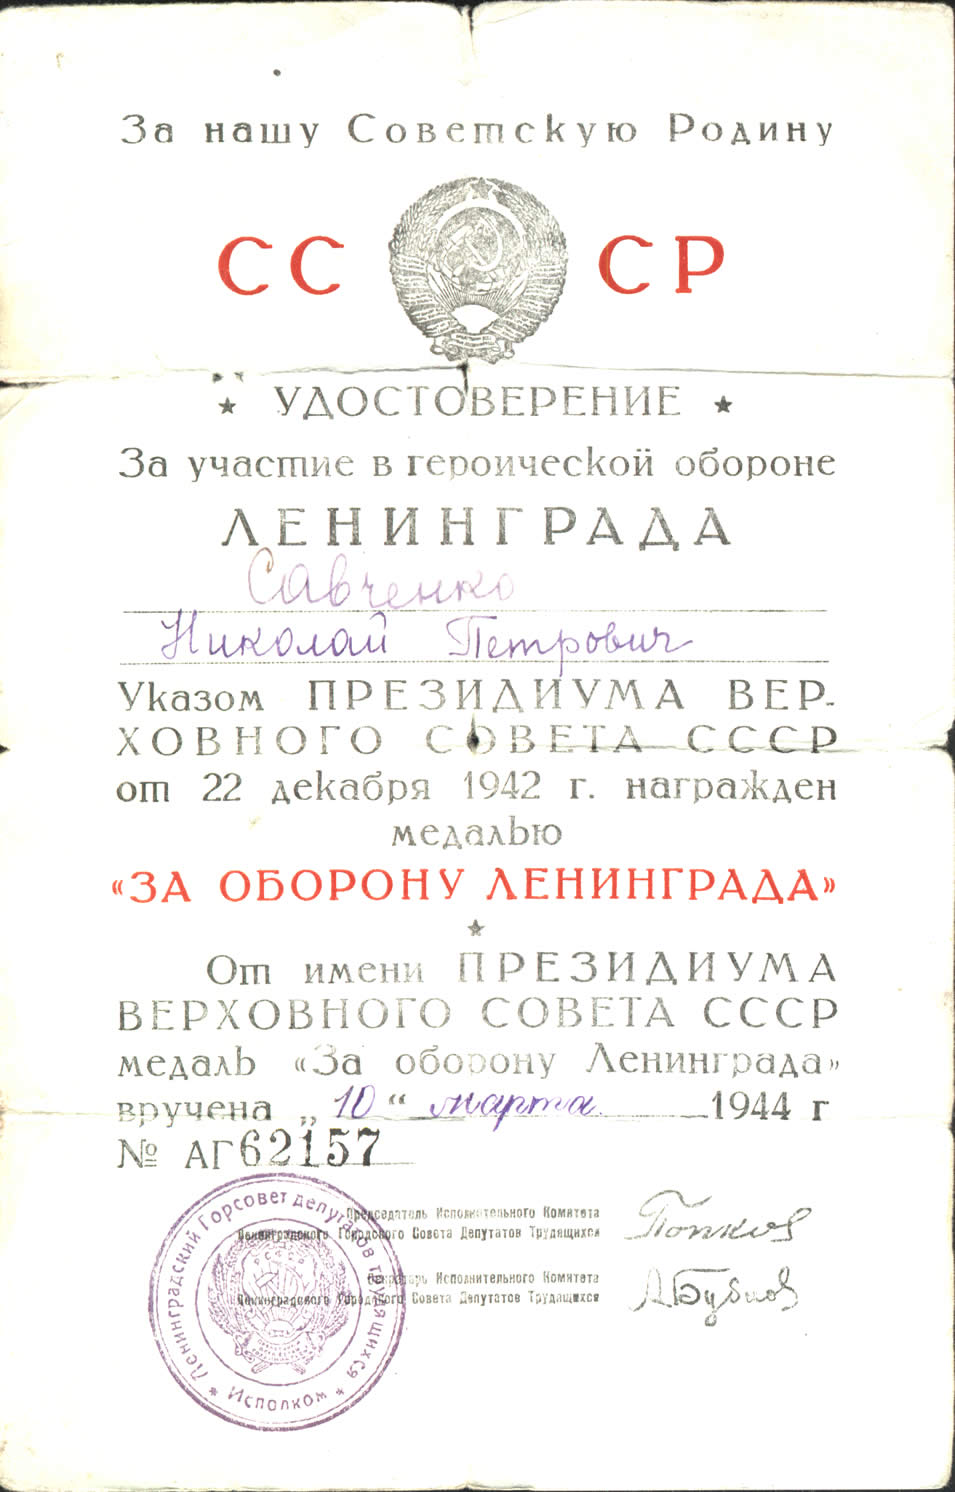 За нашу Советскую Родину
СС СР
★ УДОСТОВЕРЕНИЕ ★
За участие в героической обороне
ЛЕНИНГРАДА
Савченко
Николай Петрович
Указом ПРЕЗИДИУМА ВЕР-
ХОВНОГО СОВЕТА СССР
от 22 декабря 1942 г. награжден
медалью
«ЗА ОБОРОНУ ЛЕНИНГРАДА»
★
От имени ПРЕЗИДИУМА
ВЕРХОВНОГО СОВЕТА СССР
медаль «За оборону Ленинграда»
вручена „10“ марта 1944 г
№ АГ62157
Председатель Исполнительного Комитета
Ленинградского Городского Совета Депутатов Трудящихся
Попков
Секретарь Исполнительного Комитета
Ленинградского Городского Совета Депутатов Трудящихся
АБубнов
Ленинградский Горсовет депутатов трудящихся
★ Исполком ★
РСФСР